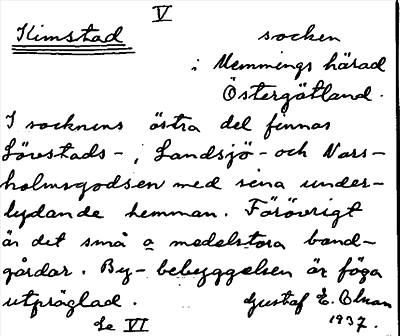 V
Kimstad socken
i Memmings härad
Östergötland.
I socknens östra del finnas
Lövstads-, Landsjö- och Nors-
holmsgodsen med sina under-
lydande hemman. Föröovrigt
är det små a medelstora bond-
gårdar. By-bebyggelsen är föga
utpräglad. Gustaf E. Olsson
Se VI 1937.